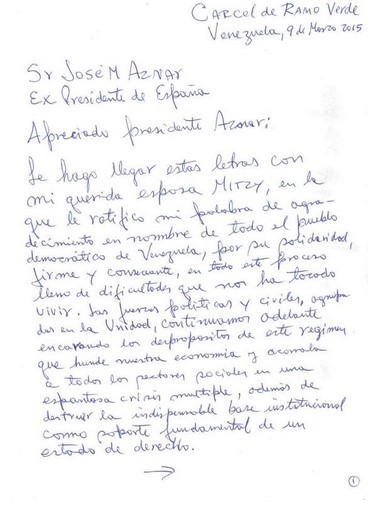 CARCEL de RAMO Verde
Venezuela, 9 de Marzo 2015
Sr José M AZNAR
Ex Presidente de España
Apreciado presidente Aznar;
Le hago llegar estas letras con
mi querida esposa MITZY, en la
que le ratifico mi palabra de agra-
decimiento en nombre de todo el pueblo
democrático de Venezuela, por su solidaridad,
firme y consecuente, en todo este proceso
lleno de dificultades que nos ha tocado
vivir. Las fuerzas políticas y civiles, agrupa-
das en la Unidad, continuamos adelante
encarando los despropositos de este regimen
que hunde nuestra economia y acorrala
a todos los sectores sociales en una
espantosa crisis multiple, además de
destruir la indispensable base institucional
como soporte fundamental de un
estado de derecho.
→
1